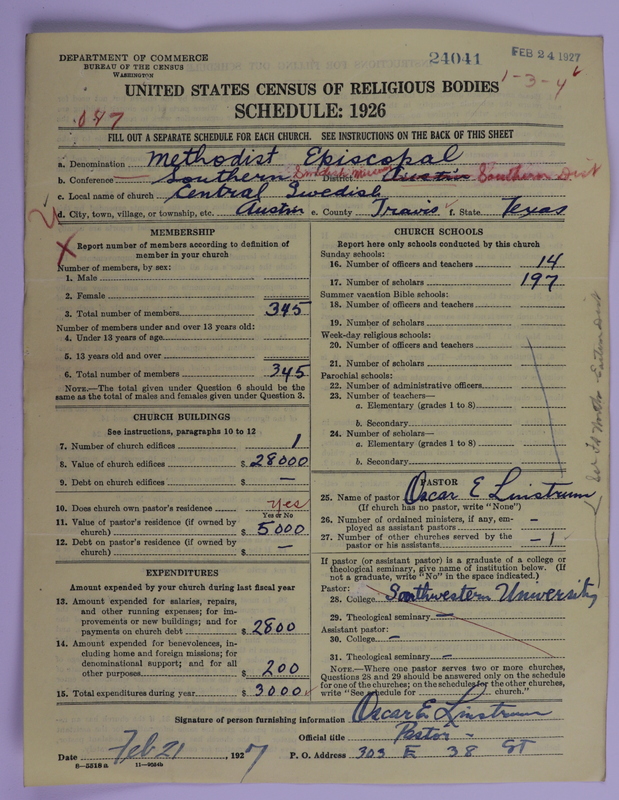 DEPARTMENT OF COMMERCE
BUREAU OF THE CENSUS
WASHINGTON
24041
FEB 24 1927
UNITED STATES CENSUS OF RELIGIOUS BODIES
1-3-4
SCHEDULE: 1926
087
FILL OUT A SEPARATE SCHEDULE FOR EACH CHURCH. SEE INSTRUCTIONS ON THE BACK OF THIS SHEET
a. Denomination Methodist Episcopal
b. Conference Southern Swedish Mission District Austin Southern Dist
c. Local name of church Central Swedish
d. City, town, village, or township, etc. Austin e. County Travis f. State Texas
MEMBERSHIP
Report number of members according to definition of member in your church
Number of members, by sex:
1. Male
2. Female
3. Total number of members 345
Number of members under and over 13 years old:
4. Under 13 years of age
5. 13 years old and over
6. Total number of members 345
NOTE.—The total given under Question 6 should be the same as the total of males and females given under Question 3.
CHURCH BUILDINGS
See instructions, paragraphs 10 to 12
7. Number of church edifices 1
8. Value of church edifices $ 28000
9. Debt on church edifices $ —
10. Does church own pastor's residence yes
Yes or No
11. Value of pastor's residence (if owned by church) $ 5000
12. Debt on pastor's residence (if owned by church) $ —
EXPENDITURES
Amount expended by your church during last fiscal year
13. Amount expended for salaries, repairs, and other running expenses; for improvements or new buildings; and for payments on church debt $ 2800
14. Amount expended for benevolences, including home and foreign missions; for denominational support; and for all other purposes $ 200
15. Total expenditures during year $ 3000
CHURCH SCHOOLS
Report here only schools conducted by this church
Sunday schools:
16. Number of officers and teachers 14
17. Number of scholars 197
Summer vacation Bible schools:
18. Number of officers and teachers
19. Number of scholars
Week-day religious schools:
20. Number of officers and teachers
21. Number of scholars
Parochial schools:
22. Number of administrative officers
23. Number of teachers—
a. Elementary (grades 1 to 8)
b. Secondary
24. Number of scholars—
a. Elementary (grades 1 to 8)
b. Secondary
PASTOR
25. Name of pastor Oscar E Linstrum
(If church has no pastor, write "None")
26. Number of ordained ministers, if any, employed as assistant pastors —
27. Number of other churches served by the pastor or his assistants — 1
If pastor (or assistant pastor) is a graduate of a college or theological seminary, give name of institution below. (If not a graduate, write "No" in the space indicated.)
Pastor:
28. College Southwestern University
29. Theological seminary —
Assistant pastor:
30. College —
31. Theological seminary —
NOTE.—Where one pastor serves two or more churches, Questions 28 and 29 should be answered only on the schedule for one of the churches; on the schedules for the other churches, write "See schedule for church."
Signature of person furnishing information Oscar E. Linstrum
Official title Pastor -
Date Feb 21, 1927 P. O. Address 303 E 38 ST
8-5518 a